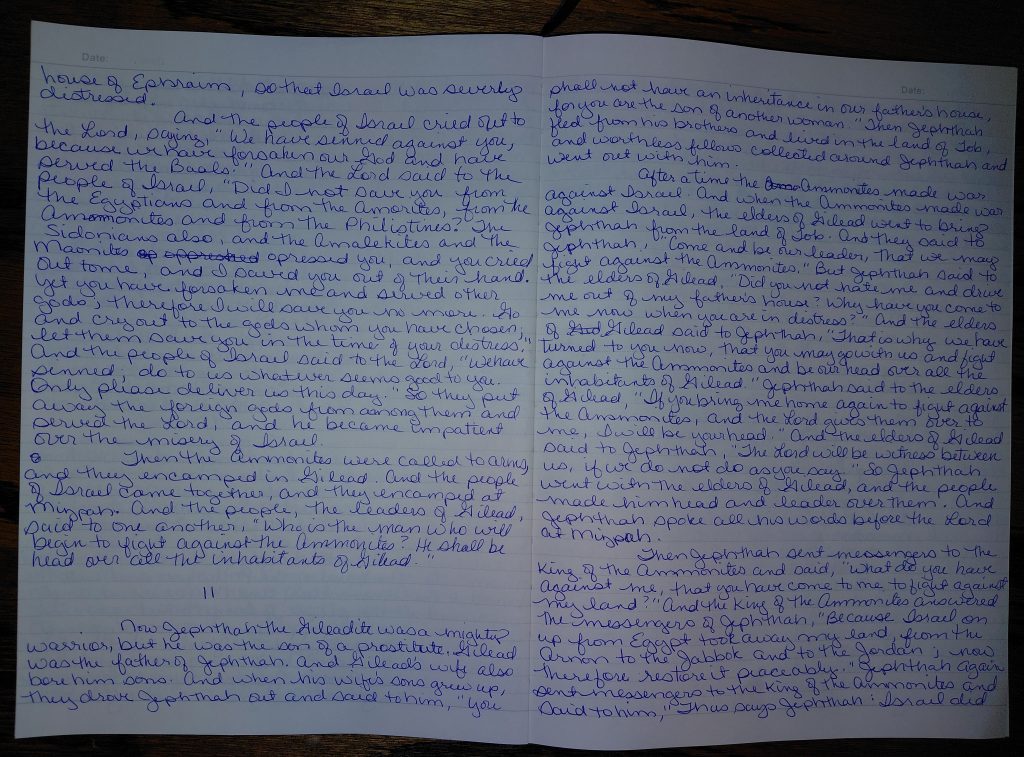 Date:
house of Ephraim, so that Israel was severly
distressed.
And the people of Israel cried out to
the Lord, saying, "We have sinned against you,
because we have forsaken our God and have
served the Baals." And the Lord said to the
people of Israel, "Did I not save you from
the Egyptians and from the Amorites, from the
Ammonites and from the Philistines? The
Sidonians also, and the Amalekites and the
Maonites op oppressed opressed you, and you cried
out to me, and I saved you out of their hand.
Yet you have forsaken me and served other
gods; therefore I will save you no more. Go
and cry out to the gods whom you have chosen;
let them save you in the time of your distress."
And the people of Israel said to the Lord, "We have
sinned; do to us whatever seems good to you.
Only please deliver us this day." So they put
away the foreign gods from among them and
served the Lord, and he became impatient
over the misery of Israel.
Then the Ammonites were called to arms,
and they encamped in Gilead. And the people
of Israel came together, and they encamped at
Mizpah. And the people, the leaders of Gilead,
said to one another, "Who is the man who will
begin to fight against the Ammonites? He shall be
head over all the inhabitants of Gilead."
11
Now Jephthah the Gileadite was a mighty
warrior, but he was the son of a prostitute. Gilead
was the father of Jephthah. And Gilead's wife also
bore him sons. And when his wife's sons grew up,
they drove Jephthah out and said to him, "you
Date:
shall not have an inheritance in our father's house,
for you are the son of another woman." Then Jephthah
fled from his brothers and lived in the land of Tob,
and worthless fellows collected around Jephthah and
went out with him.
After a time the Ammonites made war
against Israel. And when the Ammonites made war
against Israel, the elders of Gilead went to bring
Jephthah from the land of Tob. And they said to
Jephthah, "Come and be our leader, that we may
fight against the Ammonites." But Jephthah said to
the elders of Gilead, "Did you not hate me and drive
me out of my father's house? Why have you come to
me now when you are in distress?" And the elders
of Gilead said to Jephthah, "That is why we have
turned to you now, that you may go with us and fight
against the Ammonites and be our head over all the
inhabitants of Gilead." Jephthah said to the elders
of Gilead, "If you bring me home again to fight against
the Ammonites, and the Lord gives them over to
me, I will be your head." And the elders of Gilead
said to Jephthah, "The Lord will be witness between
us, if we do not do as you say." So Jephthah
went with the elders of Gilead, and the people
made him head and leader over them. And
Jephthah spoke all his words before the Lord
at Mizpah.
Then Jephthah sent messengers to the
King of the Ammonites and said, "What do you have
against me, that you have come to me to fight against
my land?" And the King of the Ammonites answered
the messengers of Jephthah, "Because Israel on
up from Egypt took away my land, from the
Arnon to the Jabbok and to the Jordan; now
therefore restore it peaceably." Jephthah again
sent messengers to the King of the Ammonites and
said to him, "Thus says Jephthah: Israel did